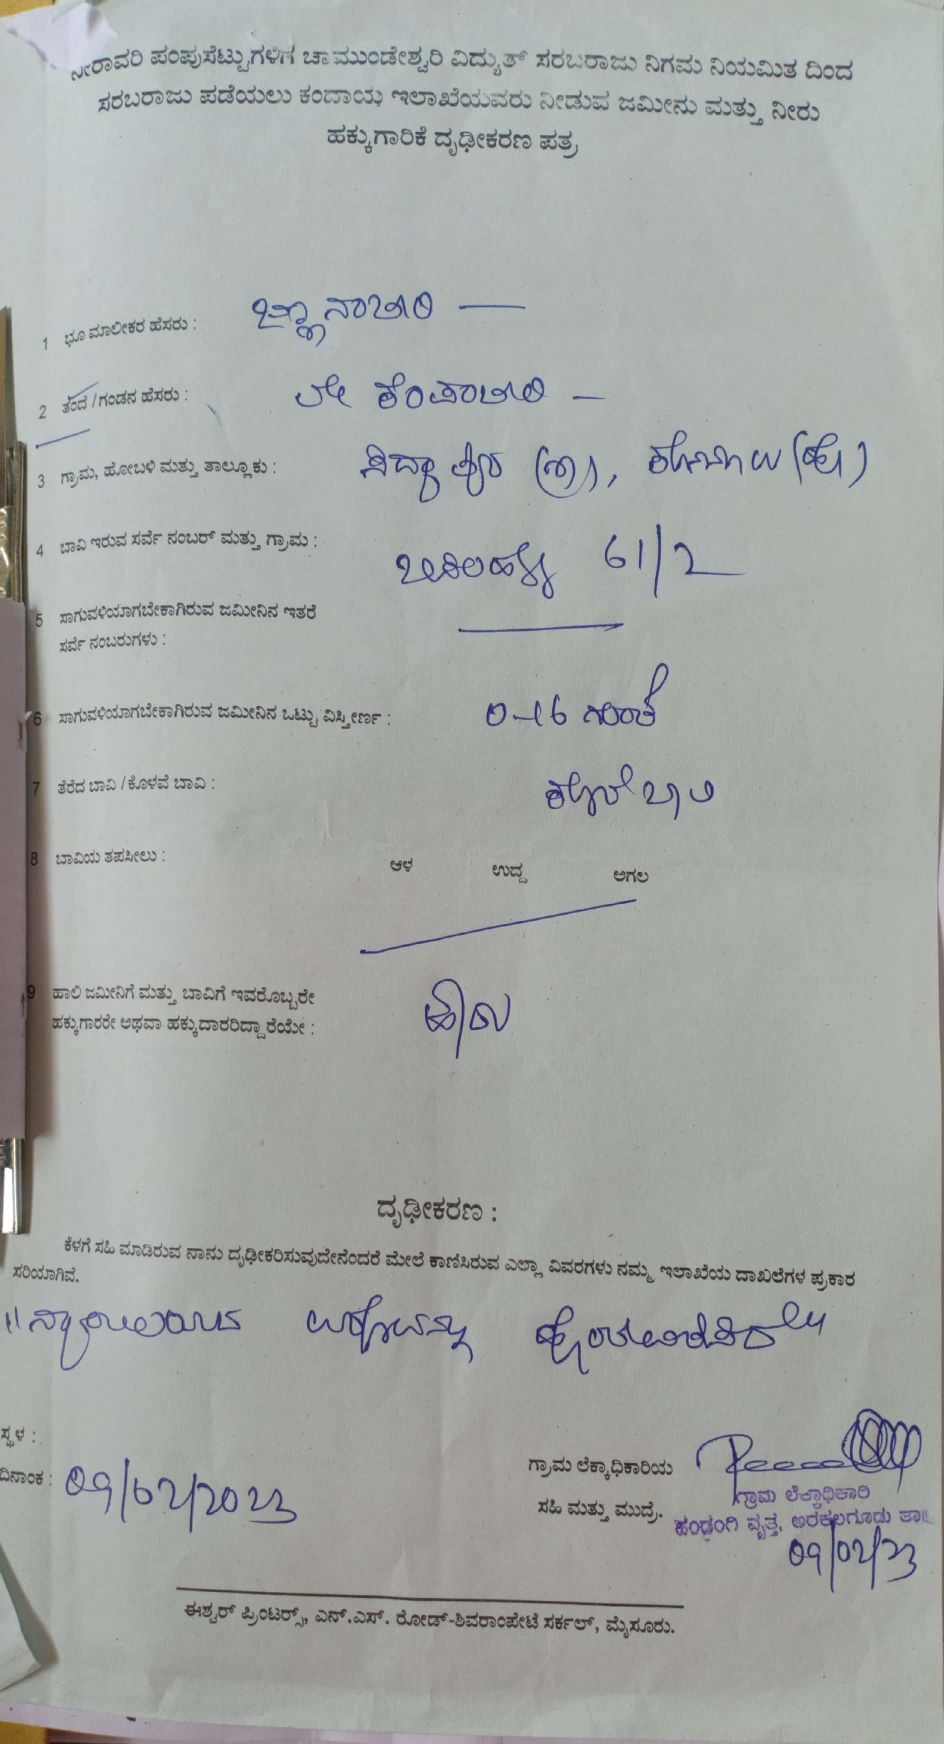 ನೀರಾವರಿ ಪಂಪುಸೆಟ್ಟುಗಳಿಗೆ ಚಾಮುಂಡೇಶ್ವರಿ ವಿದ್ಯುತ್ ಸರಬರಾಜು ನಿಗಮ ನಿಯಮಿತ ದಿಂದ
ಸರಬರಾಜು ಪಡೆಯಲು ಕಂದಾಯ ಇಲಾಖೆಯವರು ನೀಡುವ ಜಮೀನು ಮತ್ತು ನೀರು
ಹಕ್ಕುಗಾರಿಕೆ ದೃಢೀಕರಣ ಪತ್ರ
1 ಭೂ ಮಾಲೀಕರ ಹೆಸರು :
2 ತಂದೆ / ಗಂಡನ ಹೆಸರು :
3 ಗ್ರಾಮ, ಹೋಬಳಿ ಮತ್ತು ತಾಲ್ಲೂಕು :
4 ಬಾವಿ ಇರುವ ಸರ್ವೆ ನಂಬರ್ ಮತ್ತು ಗ್ರಾಮ : 61/2
5 ಸಾಗುವಳಿಯಾಗಬೇಕಾಗಿರುವ ಜಮೀನಿನ ಇತರೆ
ಸರ್ವೆ ನಂಬರುಗಳು :
6 ಸಾಗುವಳಿಯಾಗಬೇಕಾಗಿರುವ ಜಮೀನಿನ ಒಟ್ಟು ವಿಸ್ತೀರ್ಣ : 0-16 ಗುಂಟೆ
7 ತೆರೆದ ಬಾವಿ / ಕೊಳವೆ ಬಾವಿ : ಕೊಳವೆ ಬಾವಿ
8 ಬಾವಿಯ ತಪಸೀಲು : ಆಳ ಉದ್ದ ಅಗಲ
9 ಹಾಲಿ ಜಮೀನಿಗೆ ಮತ್ತು ಬಾವಿಗೆ ಇವರೊಬ್ಬರೇ
ಹಕ್ಕುಗಾರರೇ ಅಥವಾ ಹಕ್ಕುದಾರರಿದ್ದಾರೆಯೇ : ಹೌದು
ದೃಢೀಕರಣ :
ಕೆಳಗೆ ಸಹಿ ಮಾಡಿರುವ ನಾನು ದೃಢೀಕರಿಸುವುದೇನೆಂದರೆ ಮೇಲೆ ಕಾಣಿಸಿರುವ ಎಲ್ಲಾ ವಿವರಗಳು ನಮ್ಮ ಇಲಾಖೆಯ ದಾಖಲೆಗಳ ಪ್ರಕಾರ
ಸರಿಯಾಗಿವೆ.
"ನ್ಯಾಯಾಲಯದ ಹೊರತುಪಡಿಸಿದೆ"
ಸ್ಥಳ :
ದಿನಾಂಕ : 09/02/2023
ಗ್ರಾಮ ಲೆಕ್ಕಾಧಿಕಾರಿಯ
ಸಹಿ ಮತ್ತು ಮುದ್ರೆ.
ಗ್ರಾಮ ಲೆಕ್ಕಾಧಿಕಾರಿ
ಹಂಡ್ರಂಗಿ ವೃತ್ತ, ಅರಕಲಗೂಡು ತಾ||
09/02/23
ಈಶ್ವರ್ ಪ್ರಿಂಟರ್ಸ್, ಎನ್.ಎಸ್. ರೋಡ್-ಶಿವರಾಂಪೇಟೆ ಸರ್ಕಲ್, ಮೈಸೂರು.